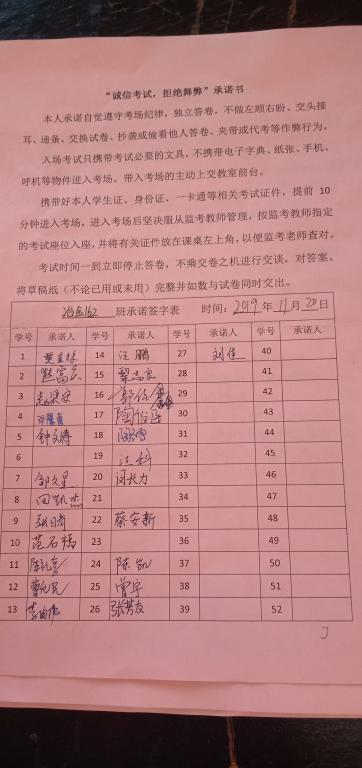 “诚信考试，拒绝舞弊”承诺书
本人承诺自觉遵守考场纪律，独立答卷，不做左顾右盼、交头接
耳、递条、交换试卷、抄袭或偷看他人答卷、夹带或代考等作弊行为。
入场考试只携带考试必要的文具，不携带电子字典、纸张、手机、
呼机等物件进入考场。带入考场的主动上交教室前台。
携带好本人学生证、身份证、一卡通等相关考试证件，提前 10
分钟进入考场，进入考场后坚决服从监考教师管理，按监考教师指定
的考试座位入座，并将有关证件放在课桌左上角，以便监考老师查对。
考试时间一到立即停止答卷，不乘交卷之机进行交谈，对答案。
将草稿纸（不论已用或未用）完整并如数与试卷同时交出。
冶金162 班承诺签字表 时间：2019 年 11 月 20 日
学号 承诺人 学号 承诺人 学号 承诺人 学号 承诺人
1 14 汪鹏 27 刘佳 40
2 熊富云 15 黎志良 28 41
3 16 29 42
4 邓馨喜 17 陶俊臣 30 43
5 钟文涛 18 31 44
6 19 江科 32 45
7 邹久星 20 闵长力 33 46
8 田凯杰 21 34 47
9 22 蔡安新 35 48
10 范石福 23 36 49
11 24 陈凯 37 50
12 25 曾宇 38 51
13 26 张芳友 39 52